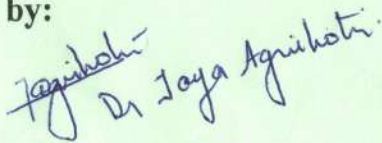 by:
Jagnihotri
Dr Jaya Agnihotri